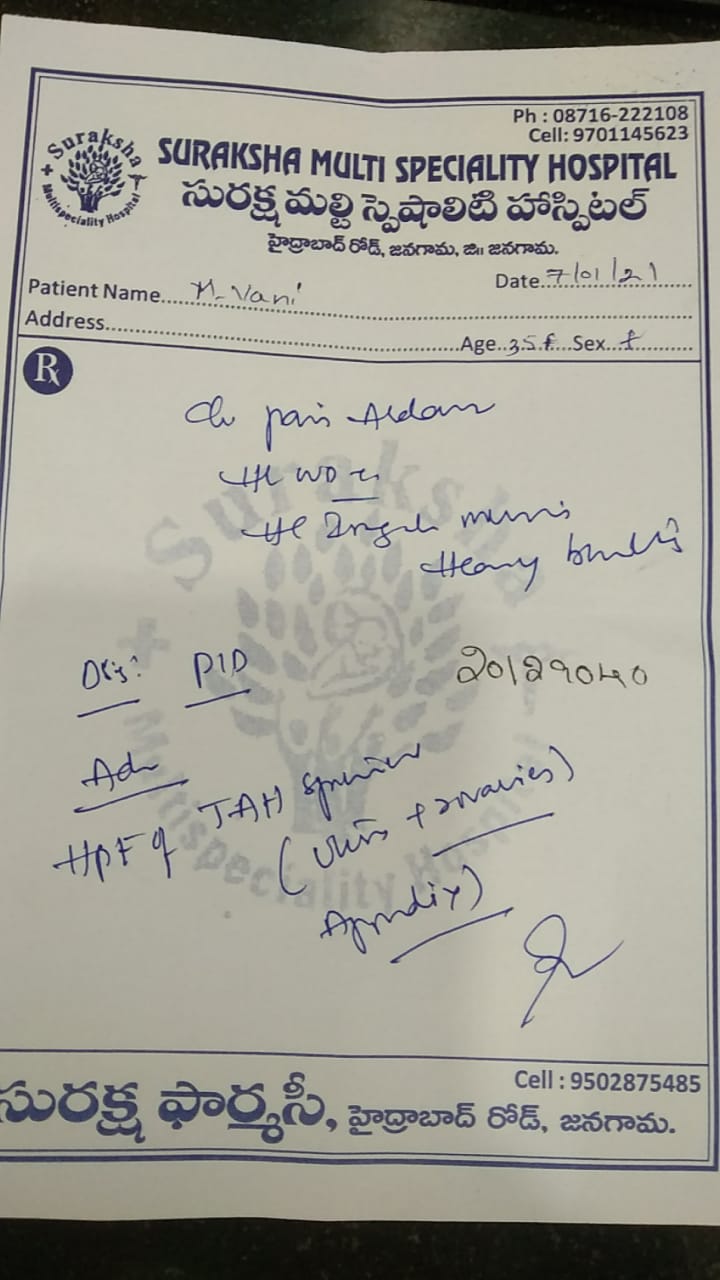 Ph : 08716-222108
Cell: 9701145623
Suraksha
Multispeciality Hospital
SURAKSHA MULTI SPECIALITY HOSPITAL
సురక్ష మల్టి స్పెషాలిటి హాస్పిటల్
హైద్రాబాద్ రోడ్, జనగామ, జిll జనగామ.
Date..7/01/21
Patient Name.... M. Vani
Address......
Age..35f...Sex..f
Rx
c/o pain
H/o
H/o menses
Heavy
PID
20129040
Adv
HPE of TAH
(uterus + ovaries)
Appendix)
Suraksha
Multispeciality Hospital
Cell : 9502875485
సురక్ష ఫార్మసీ, హైద్రాబాద్ రోడ్, జనగామ.